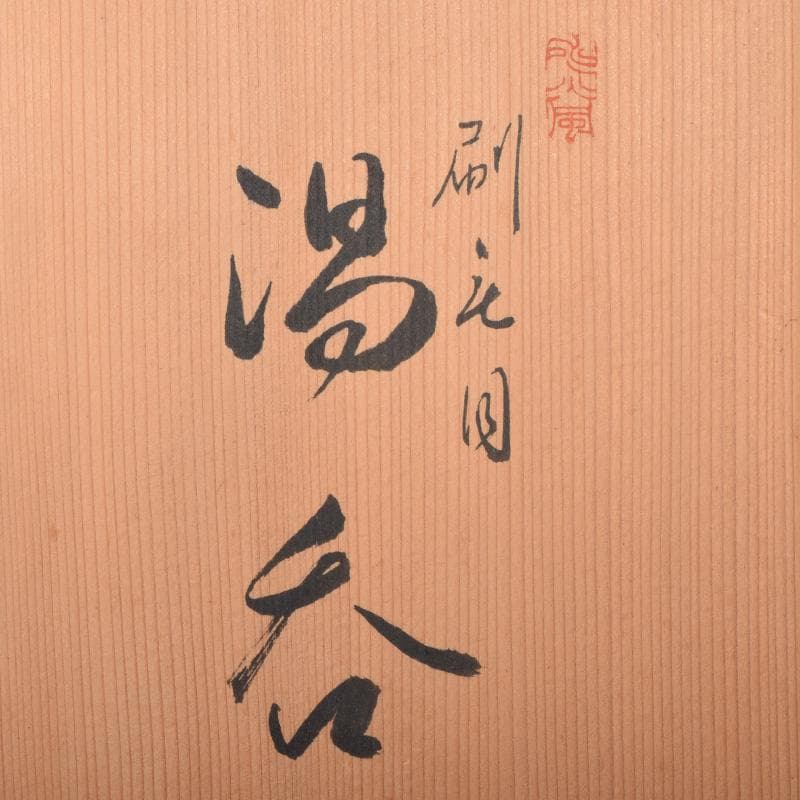 刷毛目
湯呑